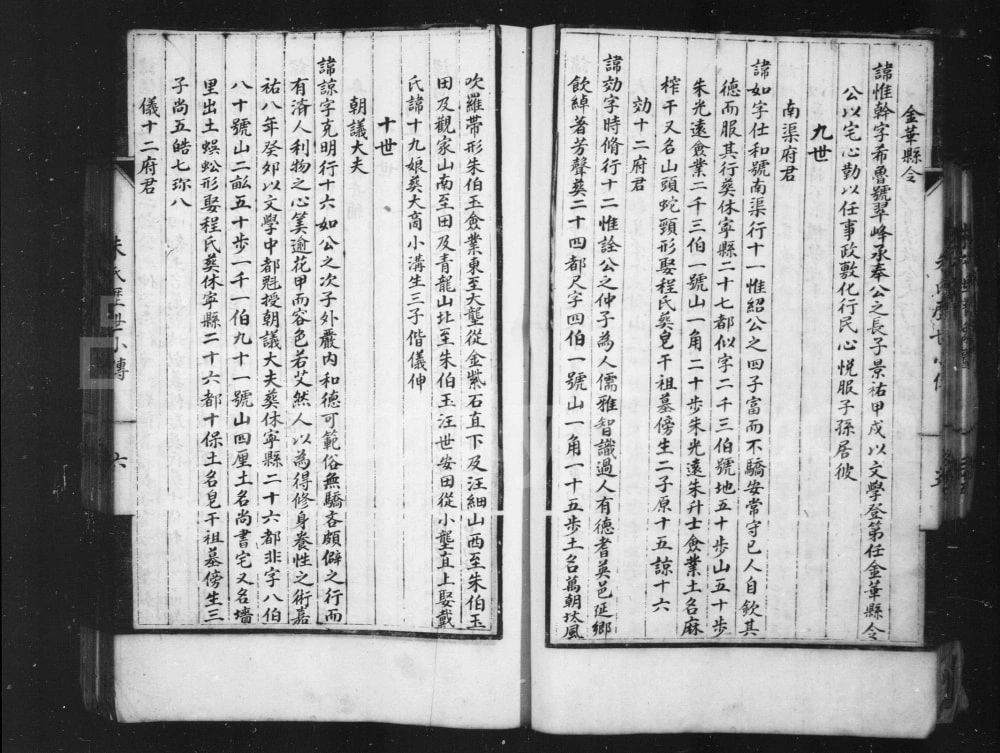 金華縣令
諱惟幹字希魯號翠峰承奉公之長子景祐甲戌以文學登第任金華縣令
公以宅心勤以任事政敷化行民心悅服子孫居彼
九世
南渠府君
諱如字仕和號南渠行十一惟紹公之四子富而不驕安常守已人自欽其
德而服其行葬休寧縣二十七都似字二千三伯號地五十步山五十步
朱光遠僉業二千三伯一號山一角二十步朱光遠朱升士僉業土名麻
榨干又名山頭蛇頸形娶程氏葬皂干祖墓傍生二子原十五諒十六
効十二府君
諱効字時脩行十二惟詮公之仲子為人儒雅智識過人有德耆英邑延鄉
飲綽著芳聲葬二十四都尺字四伯一號山一角一十五步土名萬朝坎風
吹羅帶形朱伯玉僉業東至大壟從金紫石直下及汪細山西至朱伯玉
田及觀家山南至田及青龍山北至朱伯玉汪世安田從小壟直上娶戴
氏諱十九娘葬大商小溝生三子偕儀伸
十世
朝議大夫
諱諒字克明行十六如公之次子外嚴内和德可範俗無驕吝頗僻之行而
有濟人利物之心筭逾花甲而容色若艾然人以為得修身養性之術嘉
祐八年癸夘以文學中都魁授朝議大夫葬休寧縣二十六都非字八伯
八十號山二畝五十步一千一伯九十一號山四厘土名尚書宅又名墻
里出土蜈蚣形娶程氏葬休寧縣二十六都十保土名皂干祖墓傍生三
子尚五皓七珎八
儀十二府君
朱氏歷世小傳
六